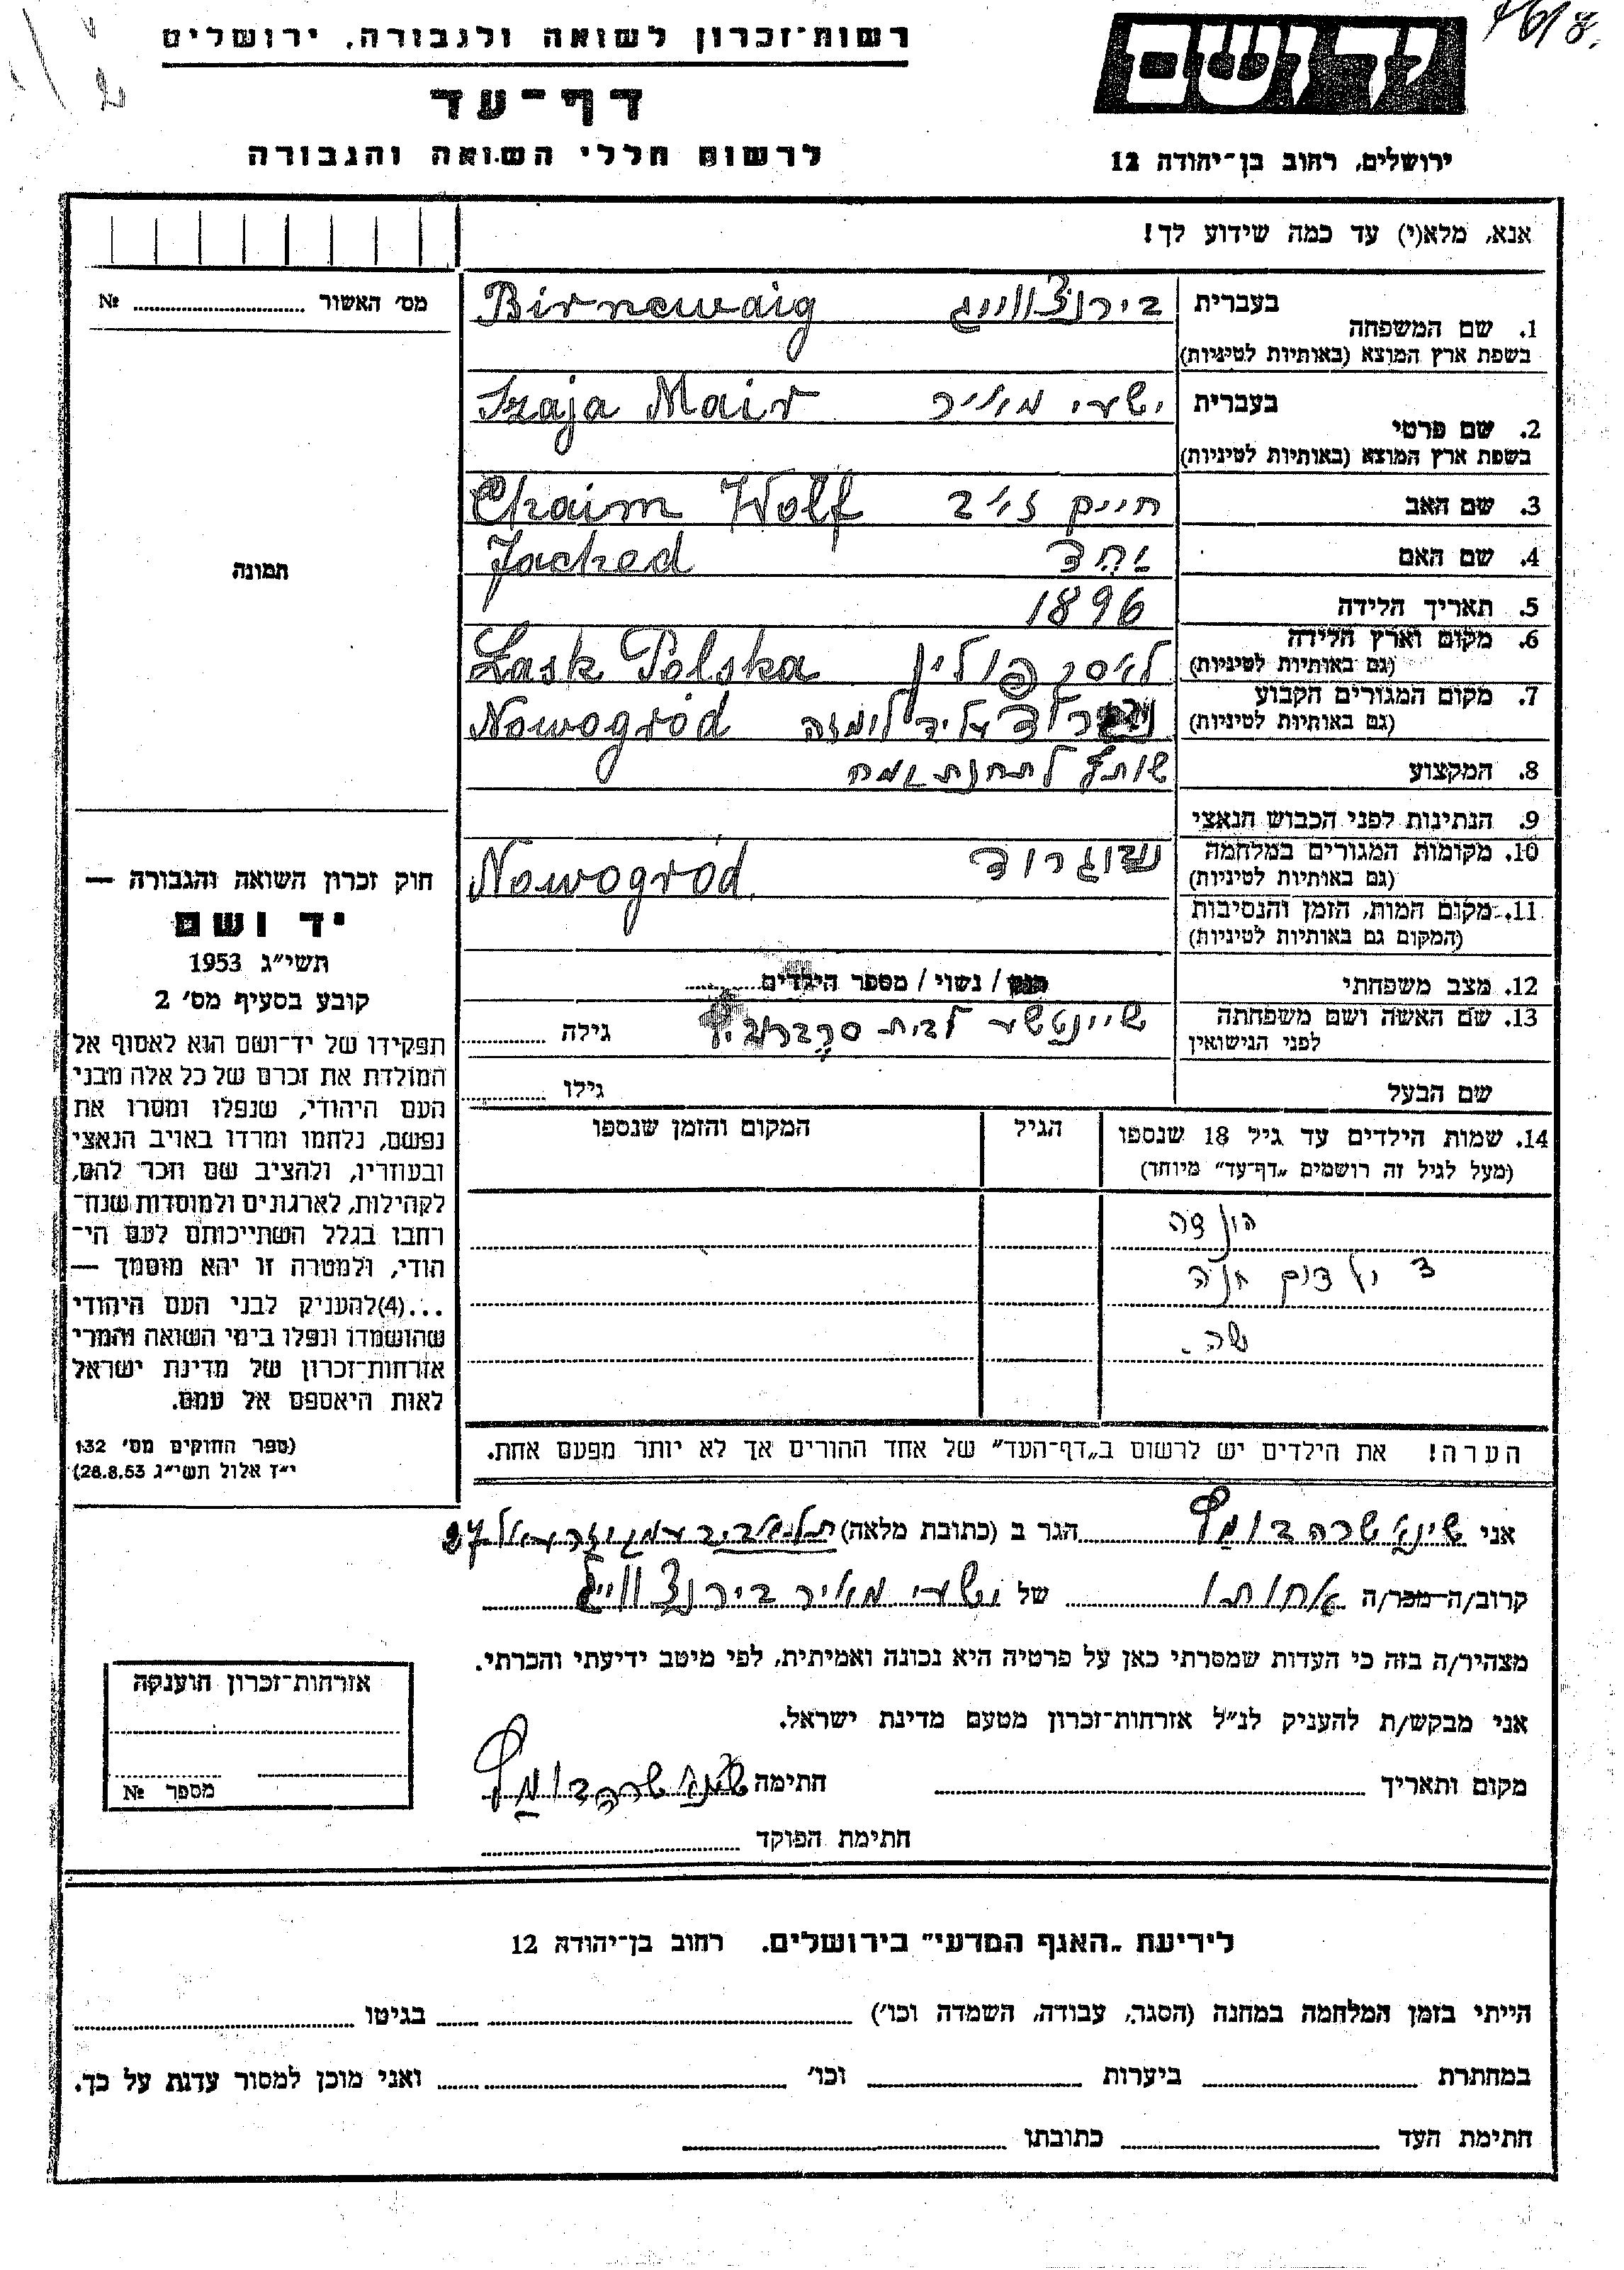 רשות־זכרון לשואה ולגבורה, ירושלים
דף־עד
לרשום חללי השואה והגבורה
יד ושם
ירושלים, רחוב בן־יהודה 12
אנא, מלא(י) עד כמה שידוע לך!
מס׳ האשור № 
1. שם המשפחה בעברית בירנצווייג Birncwaig
בשפת ארץ המוצא (באותיות לטיניות)
2. שם פרטי בעברית ישעי מאיר Izaja Mair
בשפת ארץ המוצא (באותיות לטיניות)
3. שם האב חיים זאב Chaim Wolf
4. שם האם יחד Jached
5. תאריך הלידה 1896
6. מקום וארץ הלידה לאסק פולין Łask Polska
(גם באותיות לטיניות)
7. מקום המגורים הקבוע על יד לומזה Nowogród
(גם באותיות לטיניות)
8. המקצוע שותף לתחנת קמח
9. הנתינות לפני הכבוש הנאצי
10. מקומות המגורים במלחמה נובוגרוד Nowogród
(גם באותיות לטיניות)
11. מקום המות, הזמן והנסיבות
(המקום גם באותיות לטיניות)
12. מצב משפחתי רווק / נשוי / מספר הילדים
13. שם האשה ושם משפחתה שיינטשע לבית גילה
לפני הנישואין
שם הבעל גילו
14. שמות הילדים עד גיל 18 שנספו הגיל המקום והזמן שנספו
(מעל לגיל זה רושמים „דף־עד״ מיוחד)
3 ילדים חנה
תמונה
חוק זכרון השואה והגבורה —
יד ושם
תשי״ג 1953
קובע בסעיף מס׳ 2
תפקידו של יד־ושם הוא לאסוף אל
המולדת את זכרם של כל אלה מבני
העם היהודי, שנפלו ומסרו את
נפשם, נלחמו ומרדו באויב הנאצי
ובעוזריו, ולהציב שם וזכר להם,
לקהילות, לארגונים ולמוסדות שנח־
רחבו בגלל השתייכותם לעם הי־
הודי, ולמטרה זו יהא מוסמך —
...(4)להעניק לבני העם היהודי
שהושמדו ונפלו בימי השואה והמרי
אזרחות־זכרון של מדינת ישראל
לאות היאספם אל עמם.
(ספר החוקים מס׳ 132
י״ז אלול תשי״ג 28.8.53)
הערה! את הילדים יש לרשום ב„דף־העד״ של אחד ההורים אך לא יותר מפעם אחת.
אני הגר ב (כתובת מלאה) תל־אביב עמק יזרעאל 27
קרוב/ה מכר/ה אחותו של ישעי מאיר בירנצווייג
מצהיר/ה בזה כי העדות שמסרתי כאן על פרטיה היא נכונה ואמיתית, לפי מיטב ידיעתי והכרתי.
אני מבקש/ת להעניק לנ״ל אזרחות־זכרון מטעם מדינת ישראל.
מקום ותאריך חתימה
חתימת הפוקד
אזרחות־זכרון הוענקה
מספר №
לידיעת „האגף המדעי״ בירושלים. רחוב בן־יהודה 12
הייתי בזמן המלחמה במחנה (הסגר, עבודה, השמדה וכו׳) בגיטו
במחתרת ביערות וכו׳ ואני מוכן למסור עדות על כך.
חתימת העד כתובתו